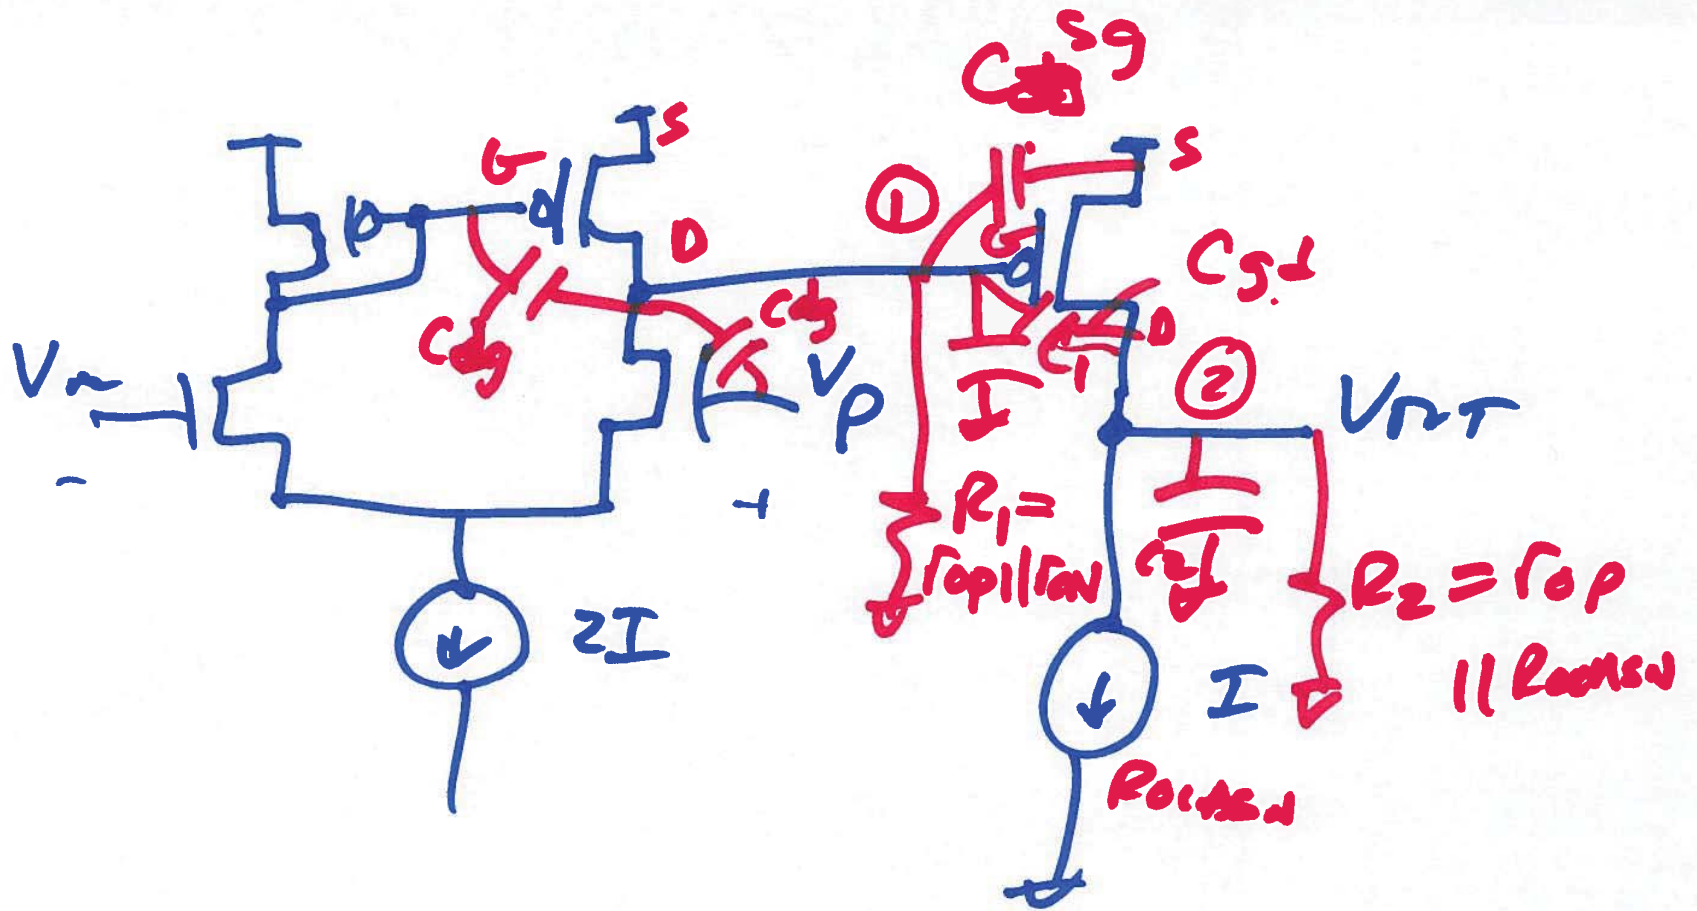 Csg
S
S
G
1
D
G
Cgd
Cdg
Cdg
D
Vp
2
VOUT
I
C1
-
+
R1=
rop||roN
C2
R2 = rop
|| ROCASN
2I
I
ROCASN